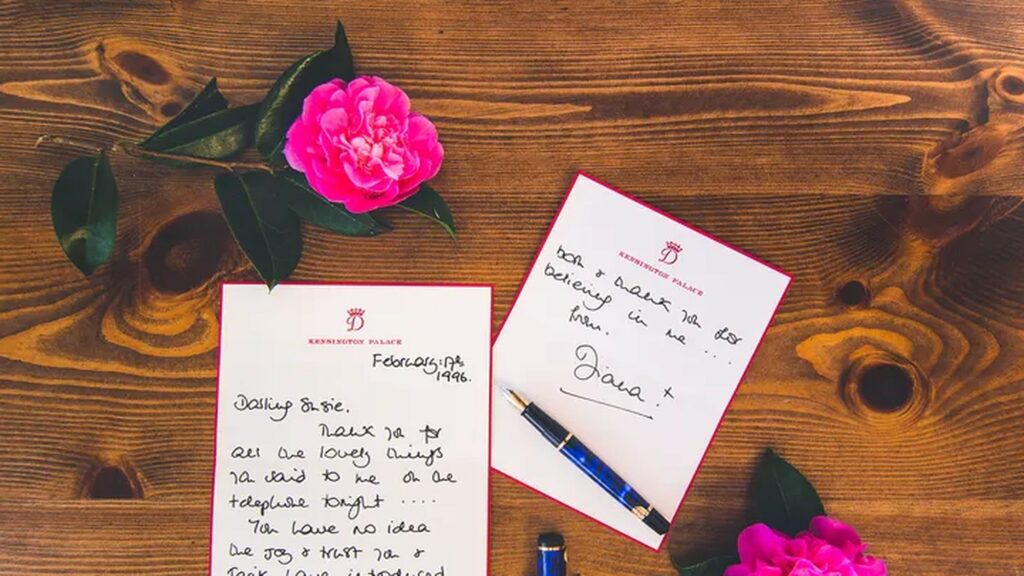 D
KENSINGTON PALACE
February: 17th
1996.
Darling Susie.
Thank you for
all the lovely things
you said to me on the
telephone tonight ....
You have no idea
the joy & trust you &
have introduced
D
KENSINGTON PALACE
both & thank you for
believing in me ...
from.
Diana. x